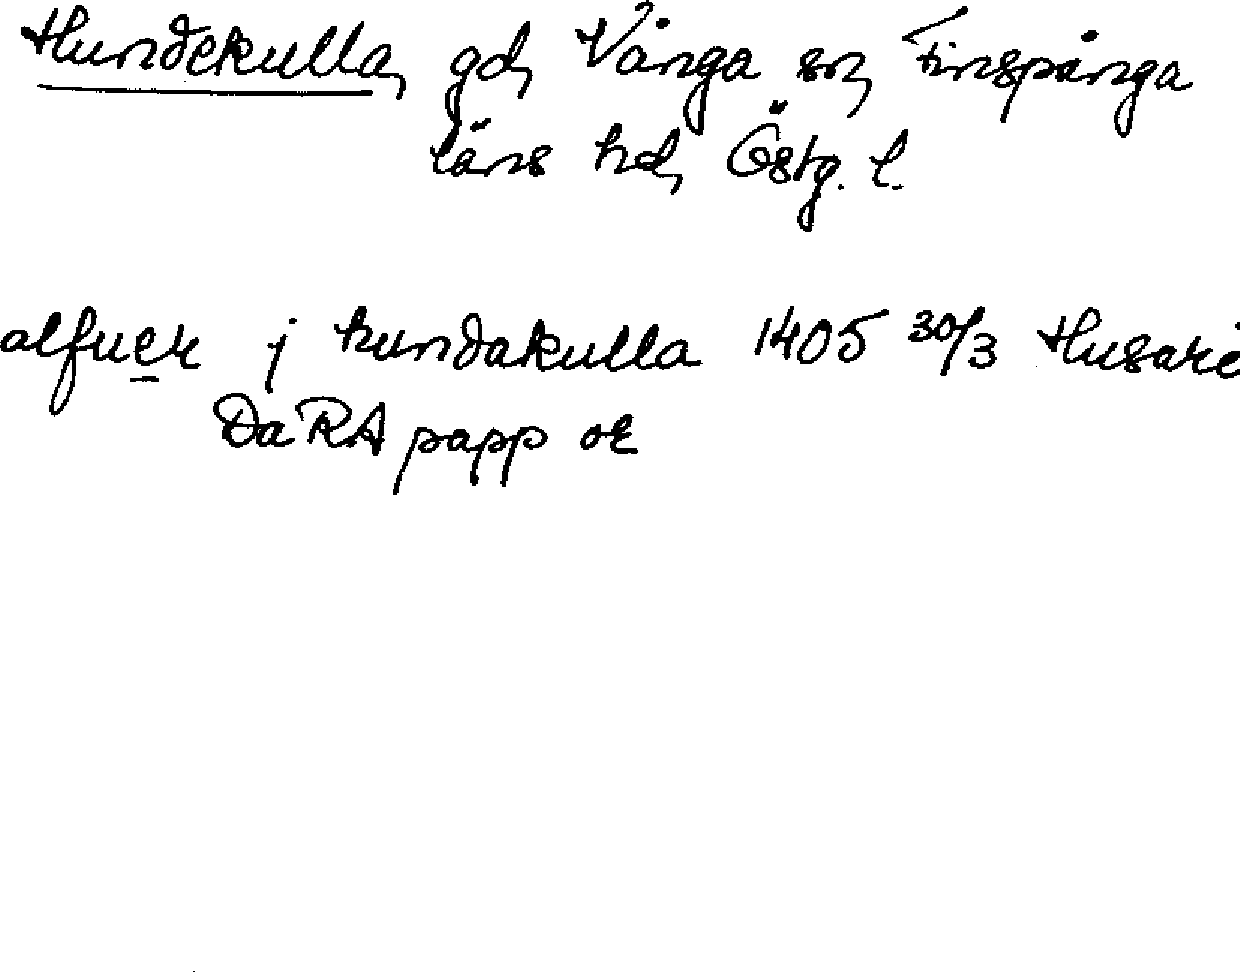 Hundekulla, gd, Vånga sn, Finspånga
läns hd, Östg. l.
alfuer j hundakulla 1405 30/3 Husaré
DaRA papp or